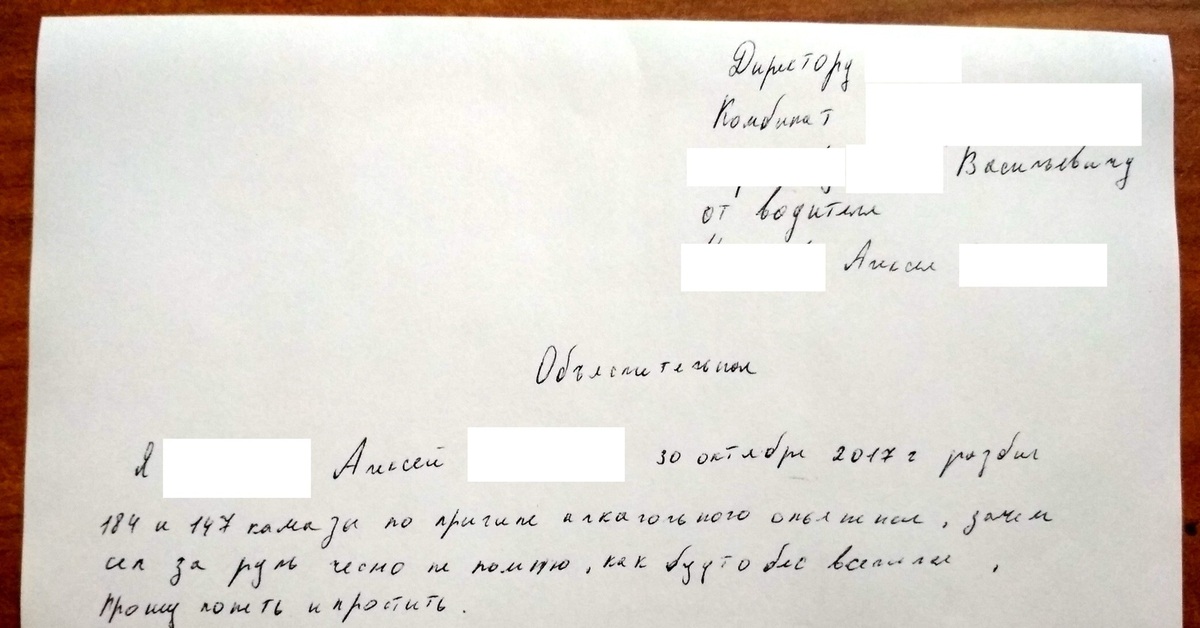 Директору
Комбинат
Васильевичу
от водителя
Алексея
Объяснительная
Я Алексей 30 октября 2017 г разбил
184 и 147 камазы по причине алкагольного опьянения, зачем
сел за руль чесно не помню, как будто бес вселился,
Прошу понять и простить.